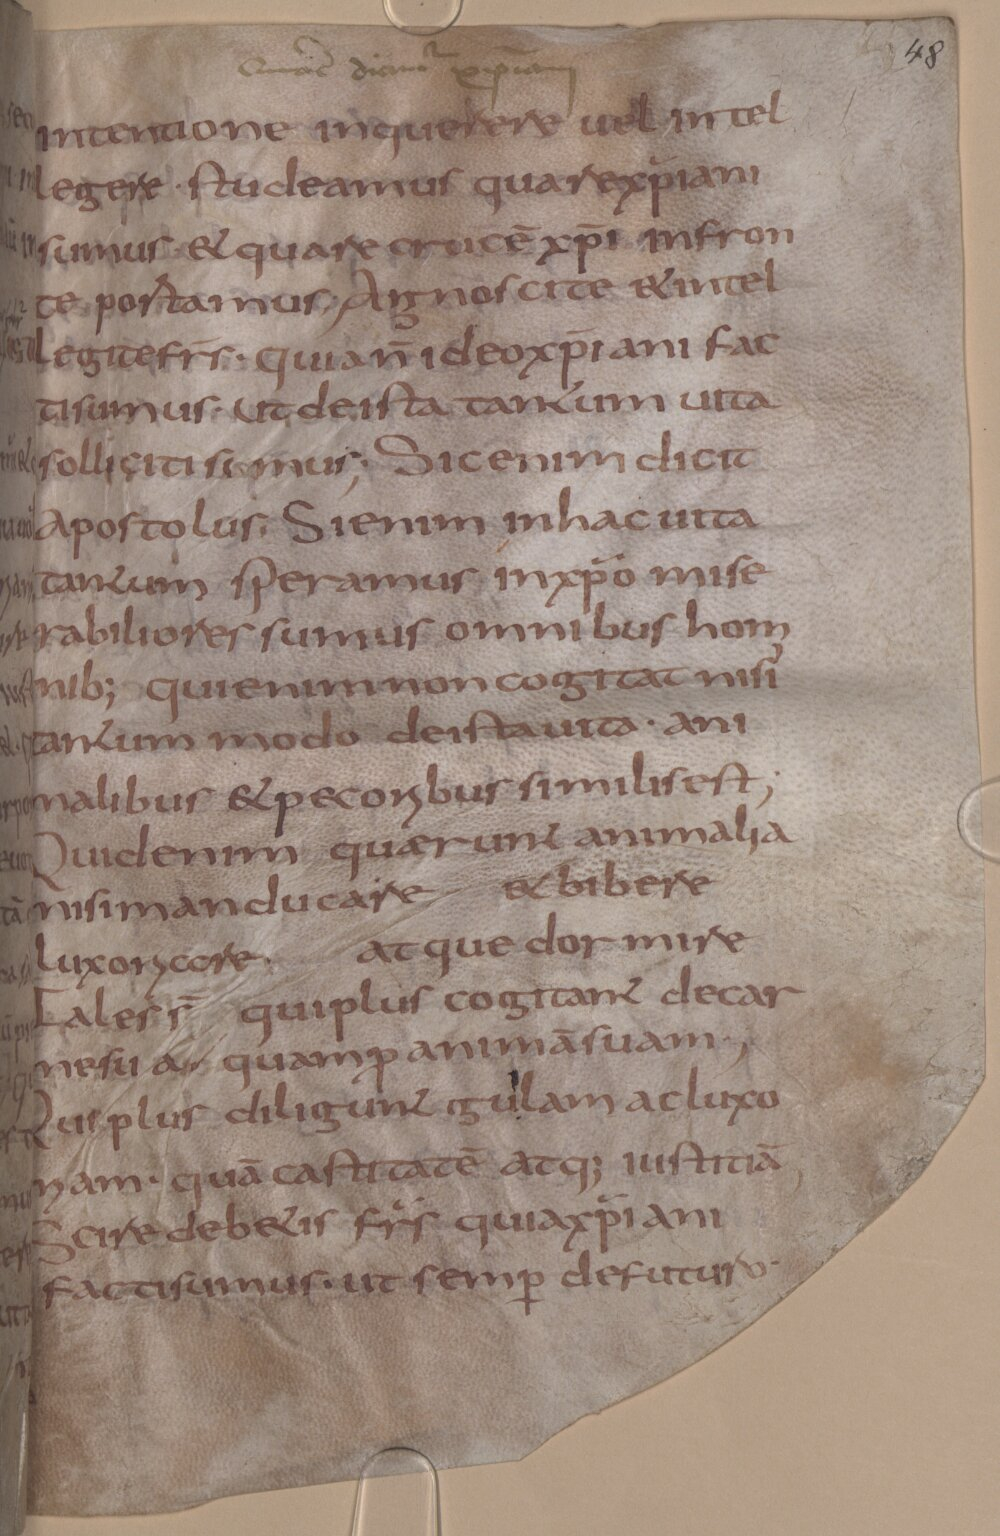 48
dicimur xp̄iani
intentione inquerere uel intel
legere · studeamus quare xp̄iani
sumus · & quare crucē xp̄i in fron
te portamus; Agnoscite & intel
legite fr̄s · quia n̄ ideo xp̄iani fac
ti sumus · ut de ista tantum uita
solliciti simus; Sic enim dicit
apostolus; Si enim in hac uita
tantum speramus in xp̄o mise
rabiliores sumus omnibus homi
nib; qui enim non cogitat nisi
tantum modo de ista uita · ani
malibus & pecoribus similis est;
Quid enim quærunt animalia
nisi manducare & bibere
luxoriare · atque dormire
Tales s̄ qui plus cogitant de car
ne sua · quam p animā suam;
Qui plus diligunt gulam ac luxo
riam · quā castitatē atq; iustitiā
Scire debetis fr̄s quia xp̄iani
facti sumus · ut semp de futuro ·